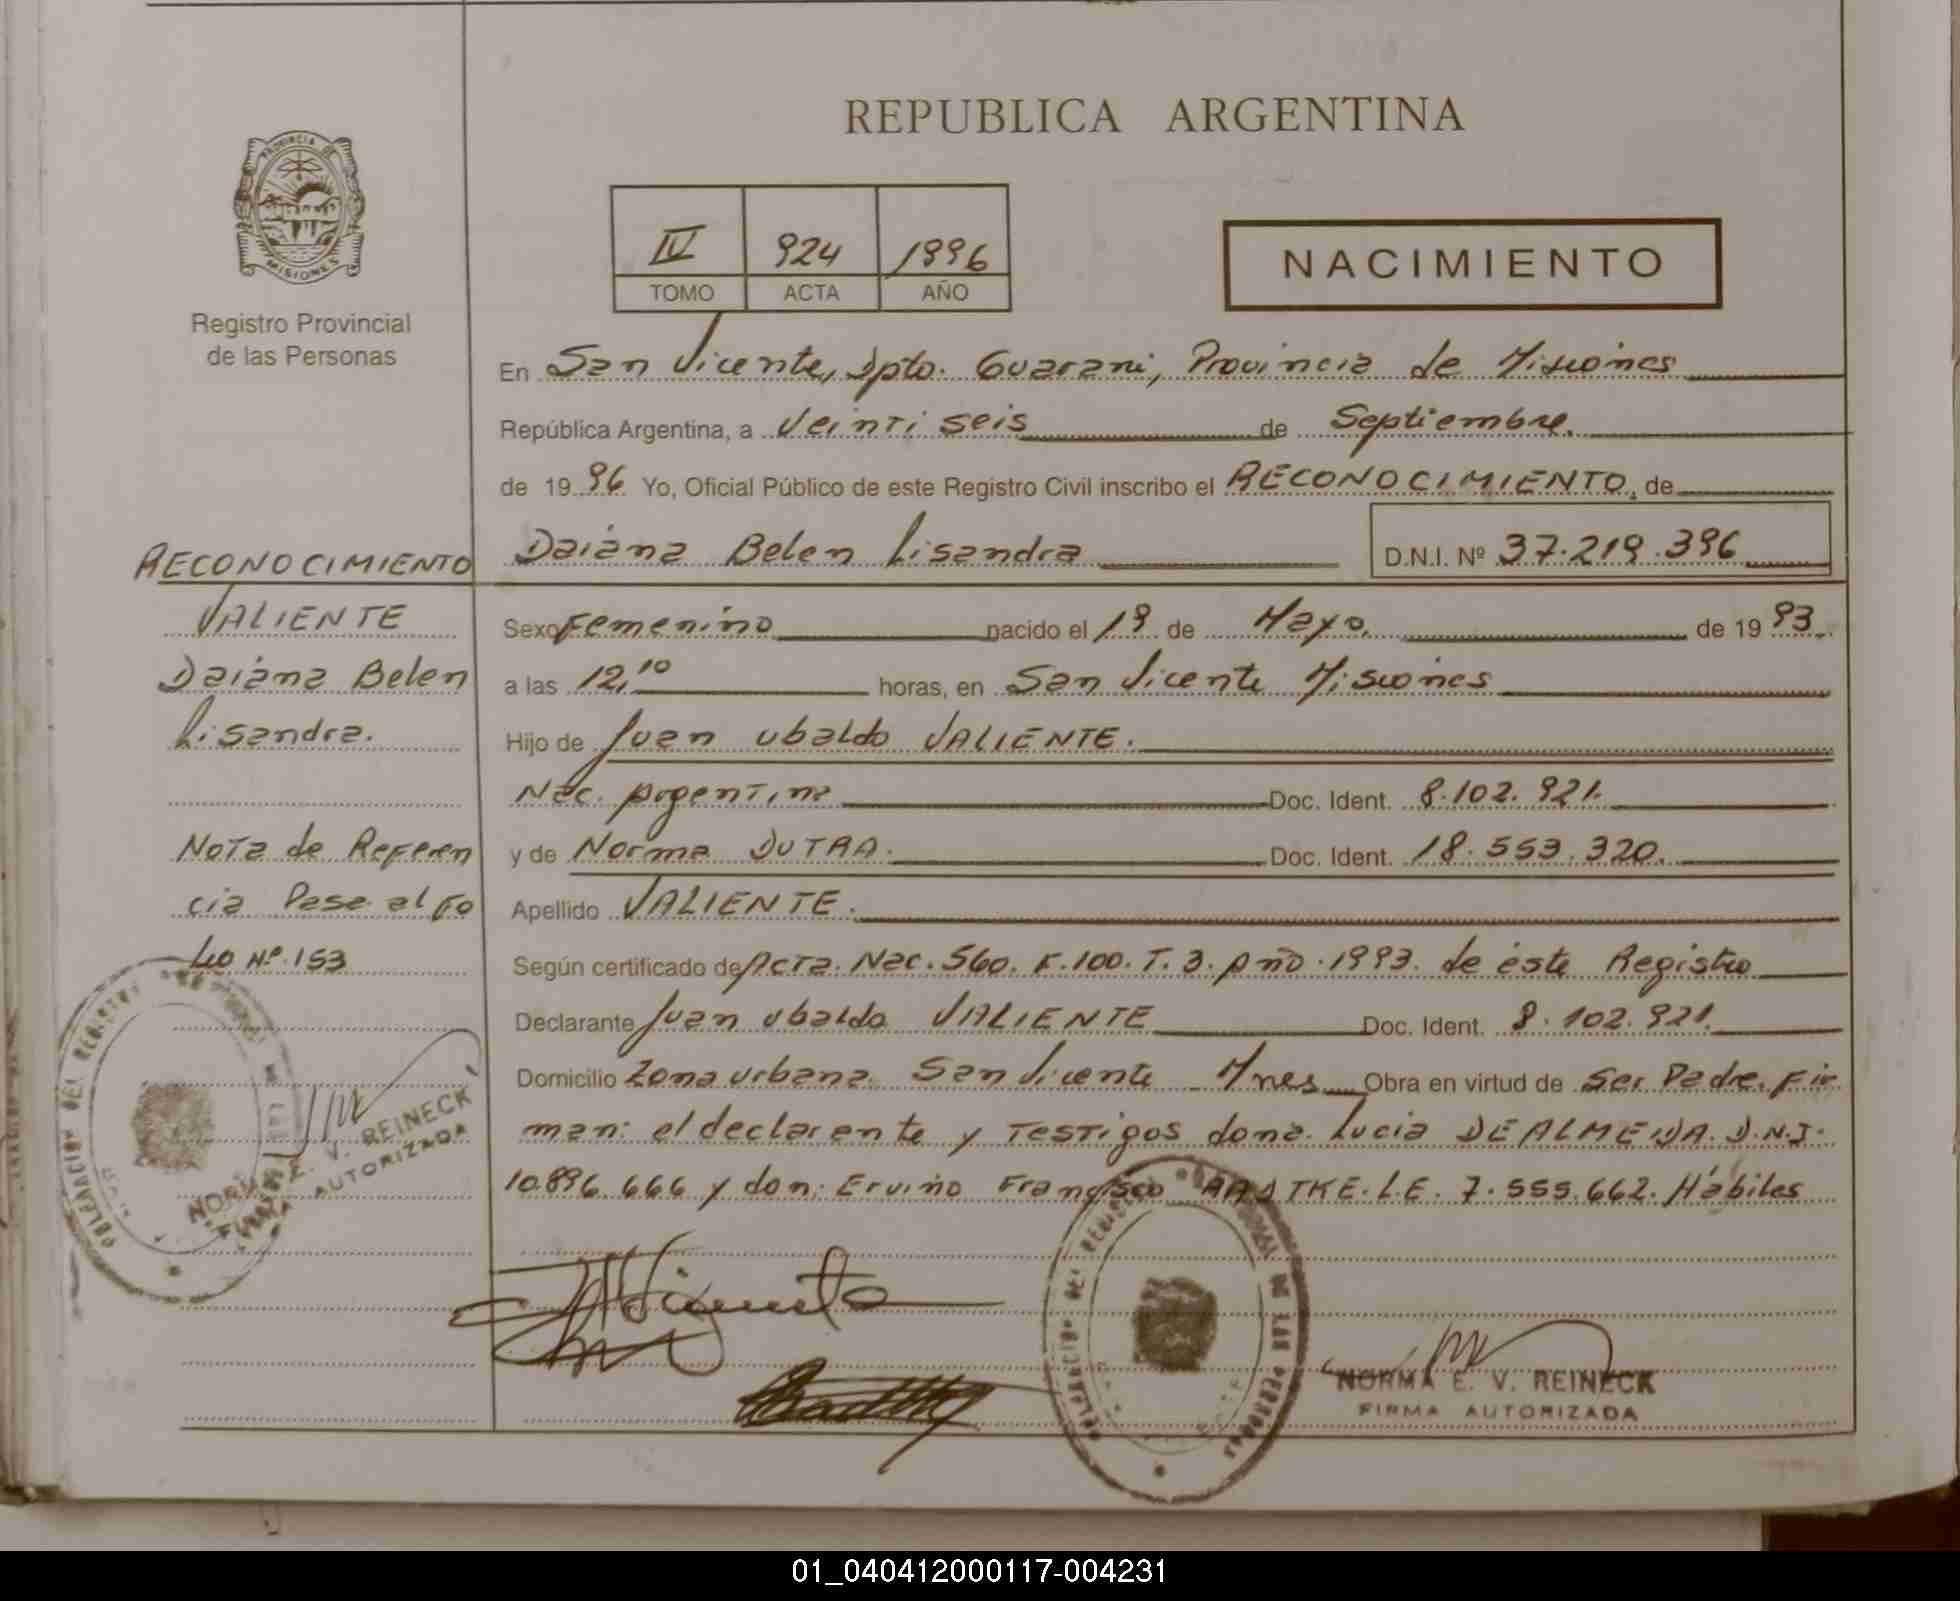 REPUBLICA ARGENTINA
PROVINCIA DE
MISIONES
Registro Provincial
de las Personas
IV 924 1996
TOMO ACTA AÑO
NACIMIENTO
En San Vicente, Dpto. Guarani, Provincia de Misiones
República Argentina, a Veinti seis de Septiembre.
de 1996 Yo, Oficial Público de este Registro Civil inscribo el RECONOCIMIENTO, de
Daiana Belen Lisandra D.N.I. Nº 37.219.396
RECONOCIMIENTO
VALIENTE
Daiana Belen
Lisandra.
Nota de Referen
cia Pase al Fo
lio Nº 153
Sexo Femenino nacido el 19 de Mayo. de 1993.
a las 12,10 horas, en San Vicente Misiones
Hijo de Juan Ubaldo VALIENTE.
Nac. Argentina Doc. Ident. 8.102.921.
y de Norma DUTRA. Doc. Ident. 18.553.320.
Apellido VALIENTE.
Según certificado de Acta. Nac. 560. F.100. T.3. Año.1993. de éste Registro
Declarante Juan Ubaldo VALIENTE Doc. Ident. 8.102.921.
Domicilio Zona urbana San Vicente Mnes Obra en virtud de Ser Padre. Fir
man: el declarante y Testigos dona. Lucia DEALMEIDA. D.N.I.
10.896.666 y don: Ervino Francisco L.E. 7.555.662. Hábiles
NORMA E. V. REINECK
FIRMA AUTORIZADA
NORMA E. V. REINECK
FIRMA AUTORIZADA
01_040412000117-004231